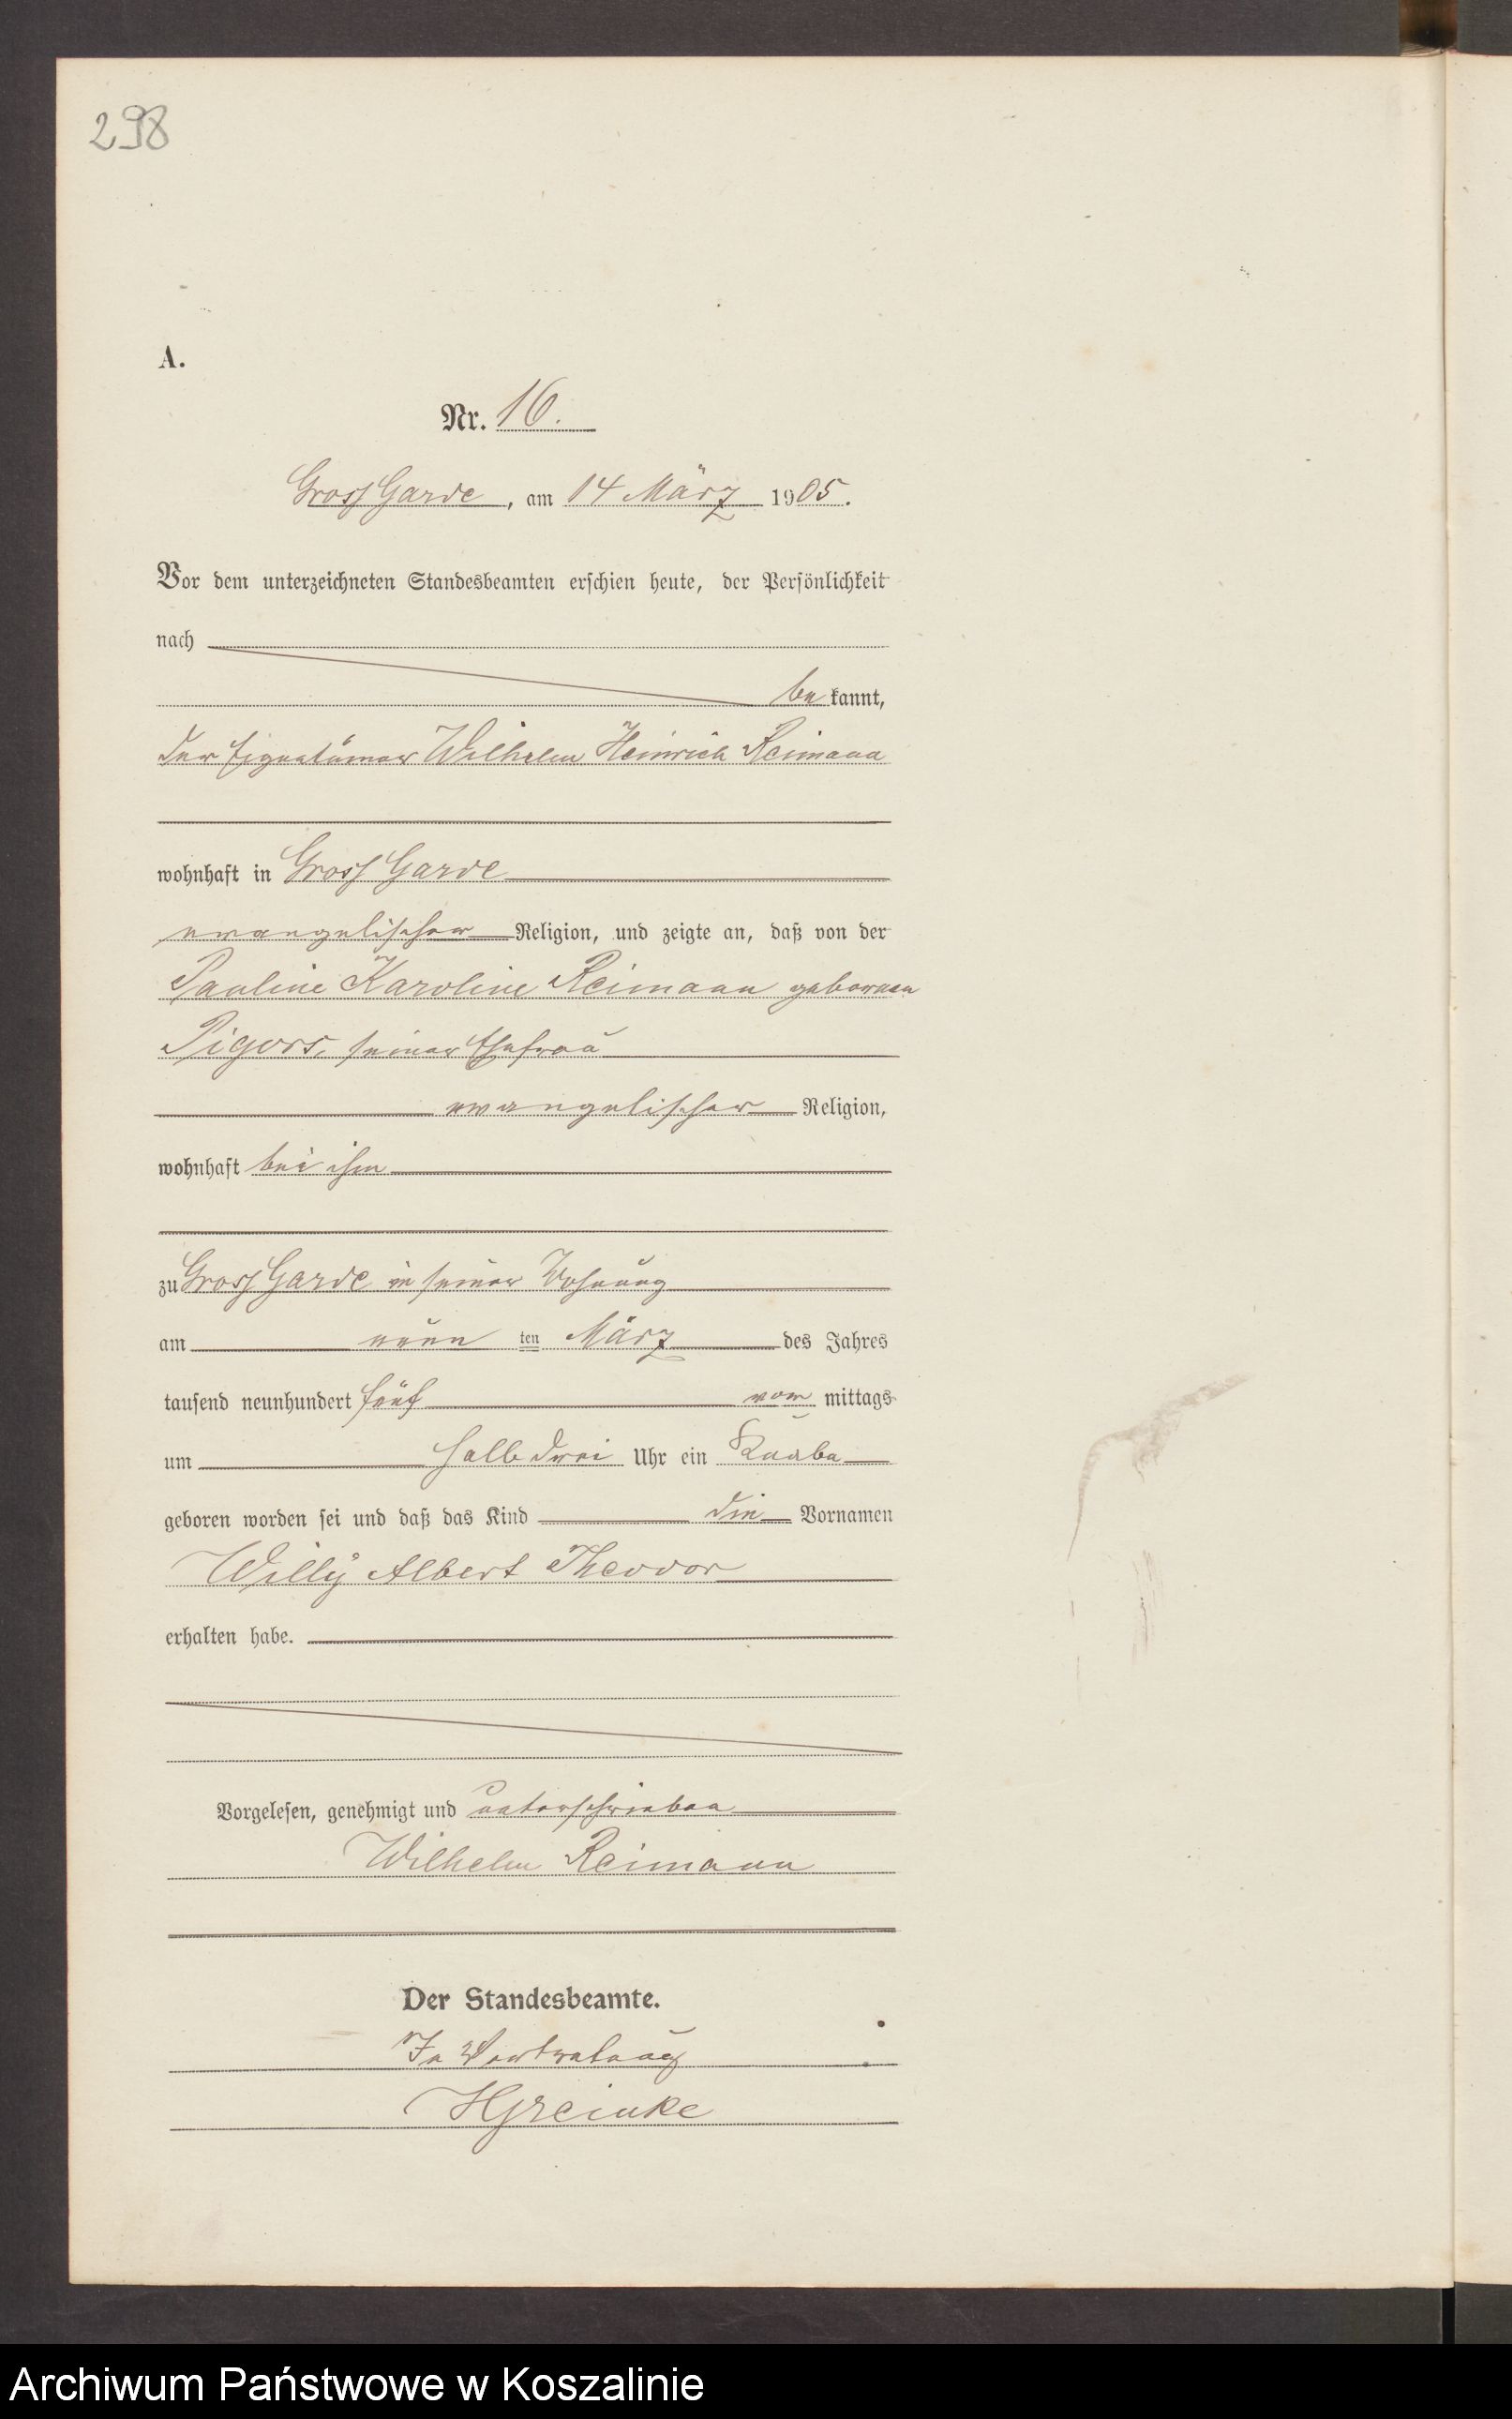 298
A.
Nr. 16.
Gross Garde, am 14 März 1905.
Vor dem unterzeichneten Standesbeamten erschien heute, der Persönlichkeit
nach
be kannt,
der Eigentümer Wilhelm Heinrich Reimann
wohnhaft in Gross Garde
evangelischer Religion, und zeigte an, daß von der
Pauline Karoline Reimann geborenen
Pigors, seiner Ehefrau
evangelischer Religion,
wohnhaft bei ihm
zu Gross Garde in seiner Wohnung
am neun ten März des Jahres
tausend neunhundert fünf vor mittags
um halb drei Uhr ein Knabe
geboren worden sei und daß das Kind die Vornamen
Willy Albert Theodor
erhalten habe.
Vorgelesen, genehmigt und unterschrieben
Wilhelm Reimann
Der Standesbeamte.
In Vertretung
Archiwum Państwowe w Koszalinie